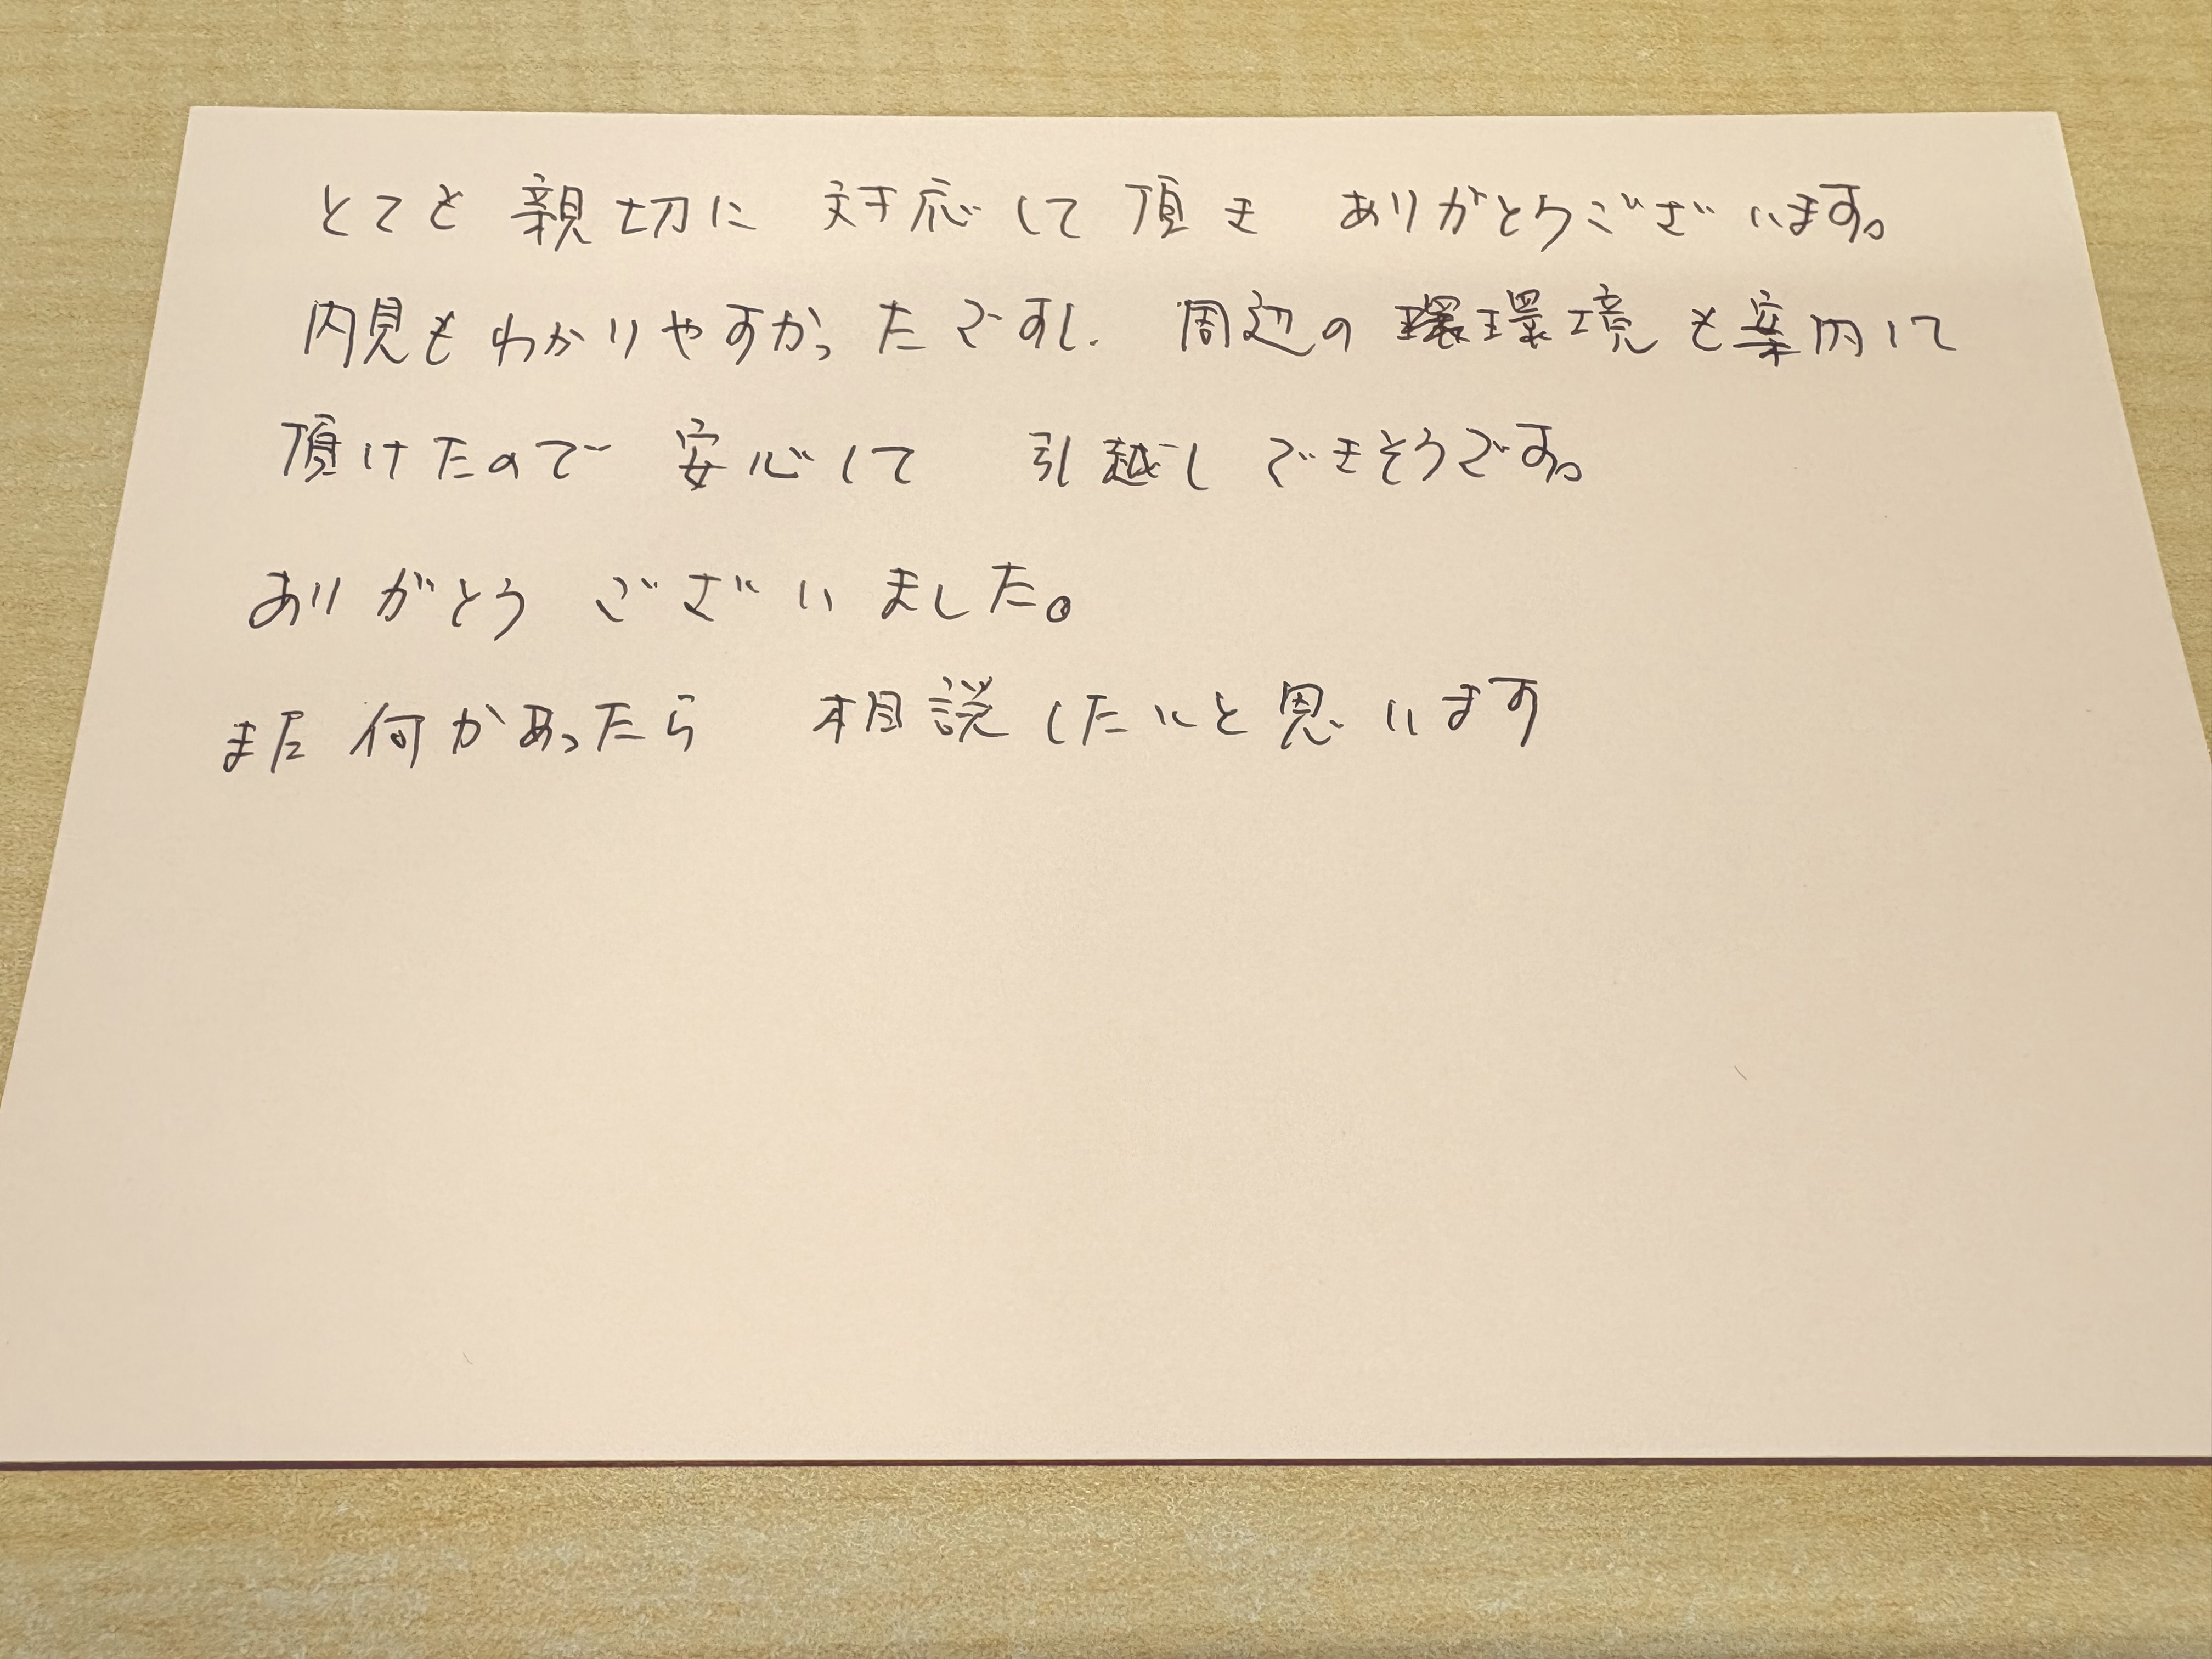 とても親切に 対応して頂き ありがとうございます。
内見もわかりやすかったですし、周辺の環境も案内して
頂けたので 安心して 引越しできそうです。
ありがとう ございました。
また何かあったら 相説したいと思います